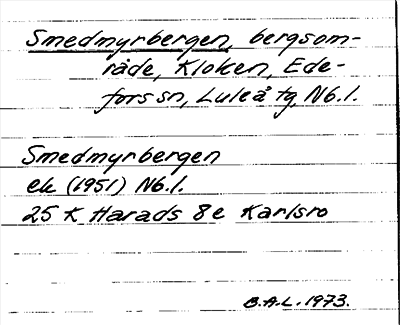 Smedmyrbergen, bergsom-
råde, Kloken, Ede-
fors sn, Luleå tg, Nb.l.
Smedmyrbergen
ek (1951) Nb.l.
25 K Harads 8e Karlsro
B.A.L. 1973.